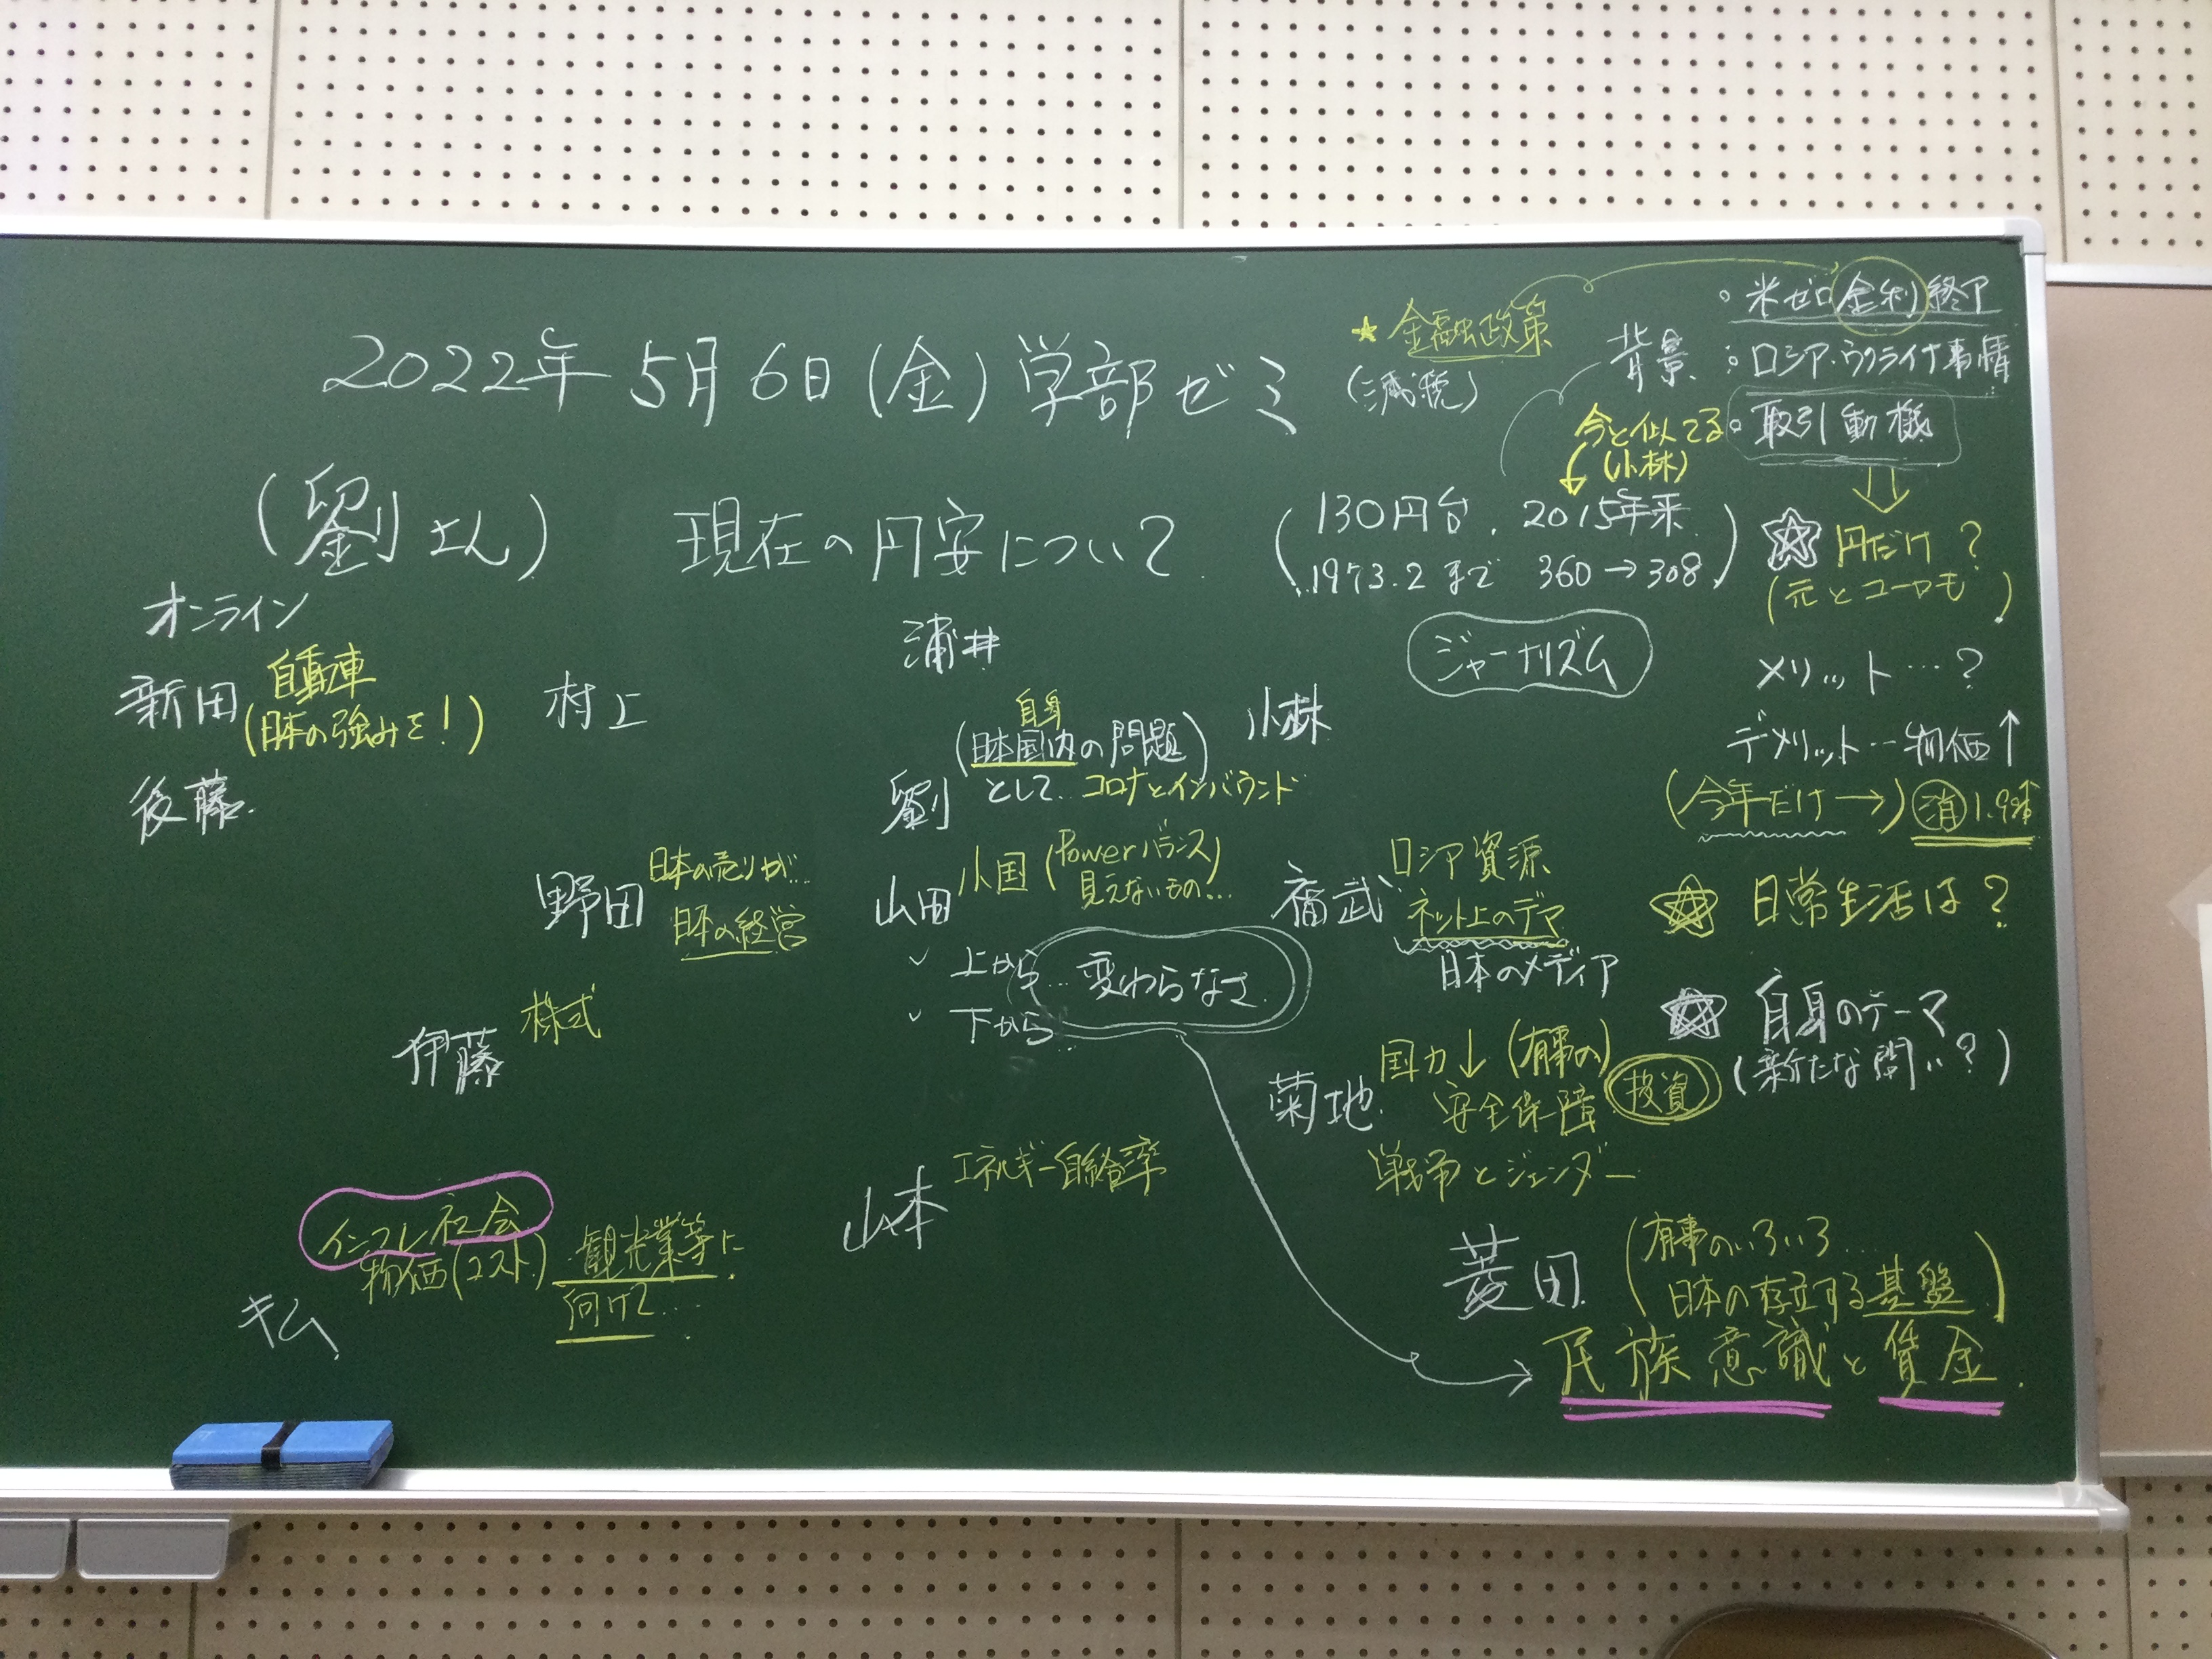 2022年 5月 6日(金)学部ゼミ
★金融政策
(減税)
背景
・米ゼロ金利終了
・ロシア・ウクライナ事情
・取引動機
今と似てる
(小林)
(劉さん) 現在の円安について
(130円台. 2015年来
1973.2まで 360→308)
☆円だけ?
(元とユーロも)
ジャーナリズム
メリット…?
デメリット…物価↑
(今年だけ→) 消 1.9%
☆ 日常生活は?
☆ 自身のテーマ
(新たな問い?)
オンライン
新田 自動車
(日本の強みを!)
後藤
村上
浦井
小林
劉 自身
(日本国内の問題)
として… コロナとインバウンド
野田 日本の売りが…
日本の経営
山田 小国 (Powerバランス)
見えないもの…
✓ 上から
✓ 下から
…変わらなさ
福武 ロシア資源
ネット上のデマ
日本のメディア
伊藤 株式
菊地 国力↓(有事の)
安全保障
投資
戦争とジェンダー
山本 エネルギー自給率
インフレ社会
物価(コスト) 観光業等に
向けて…
キム
菱田 (有事のいろいろ…
日本の存立する基盤)
民族意識と賃金